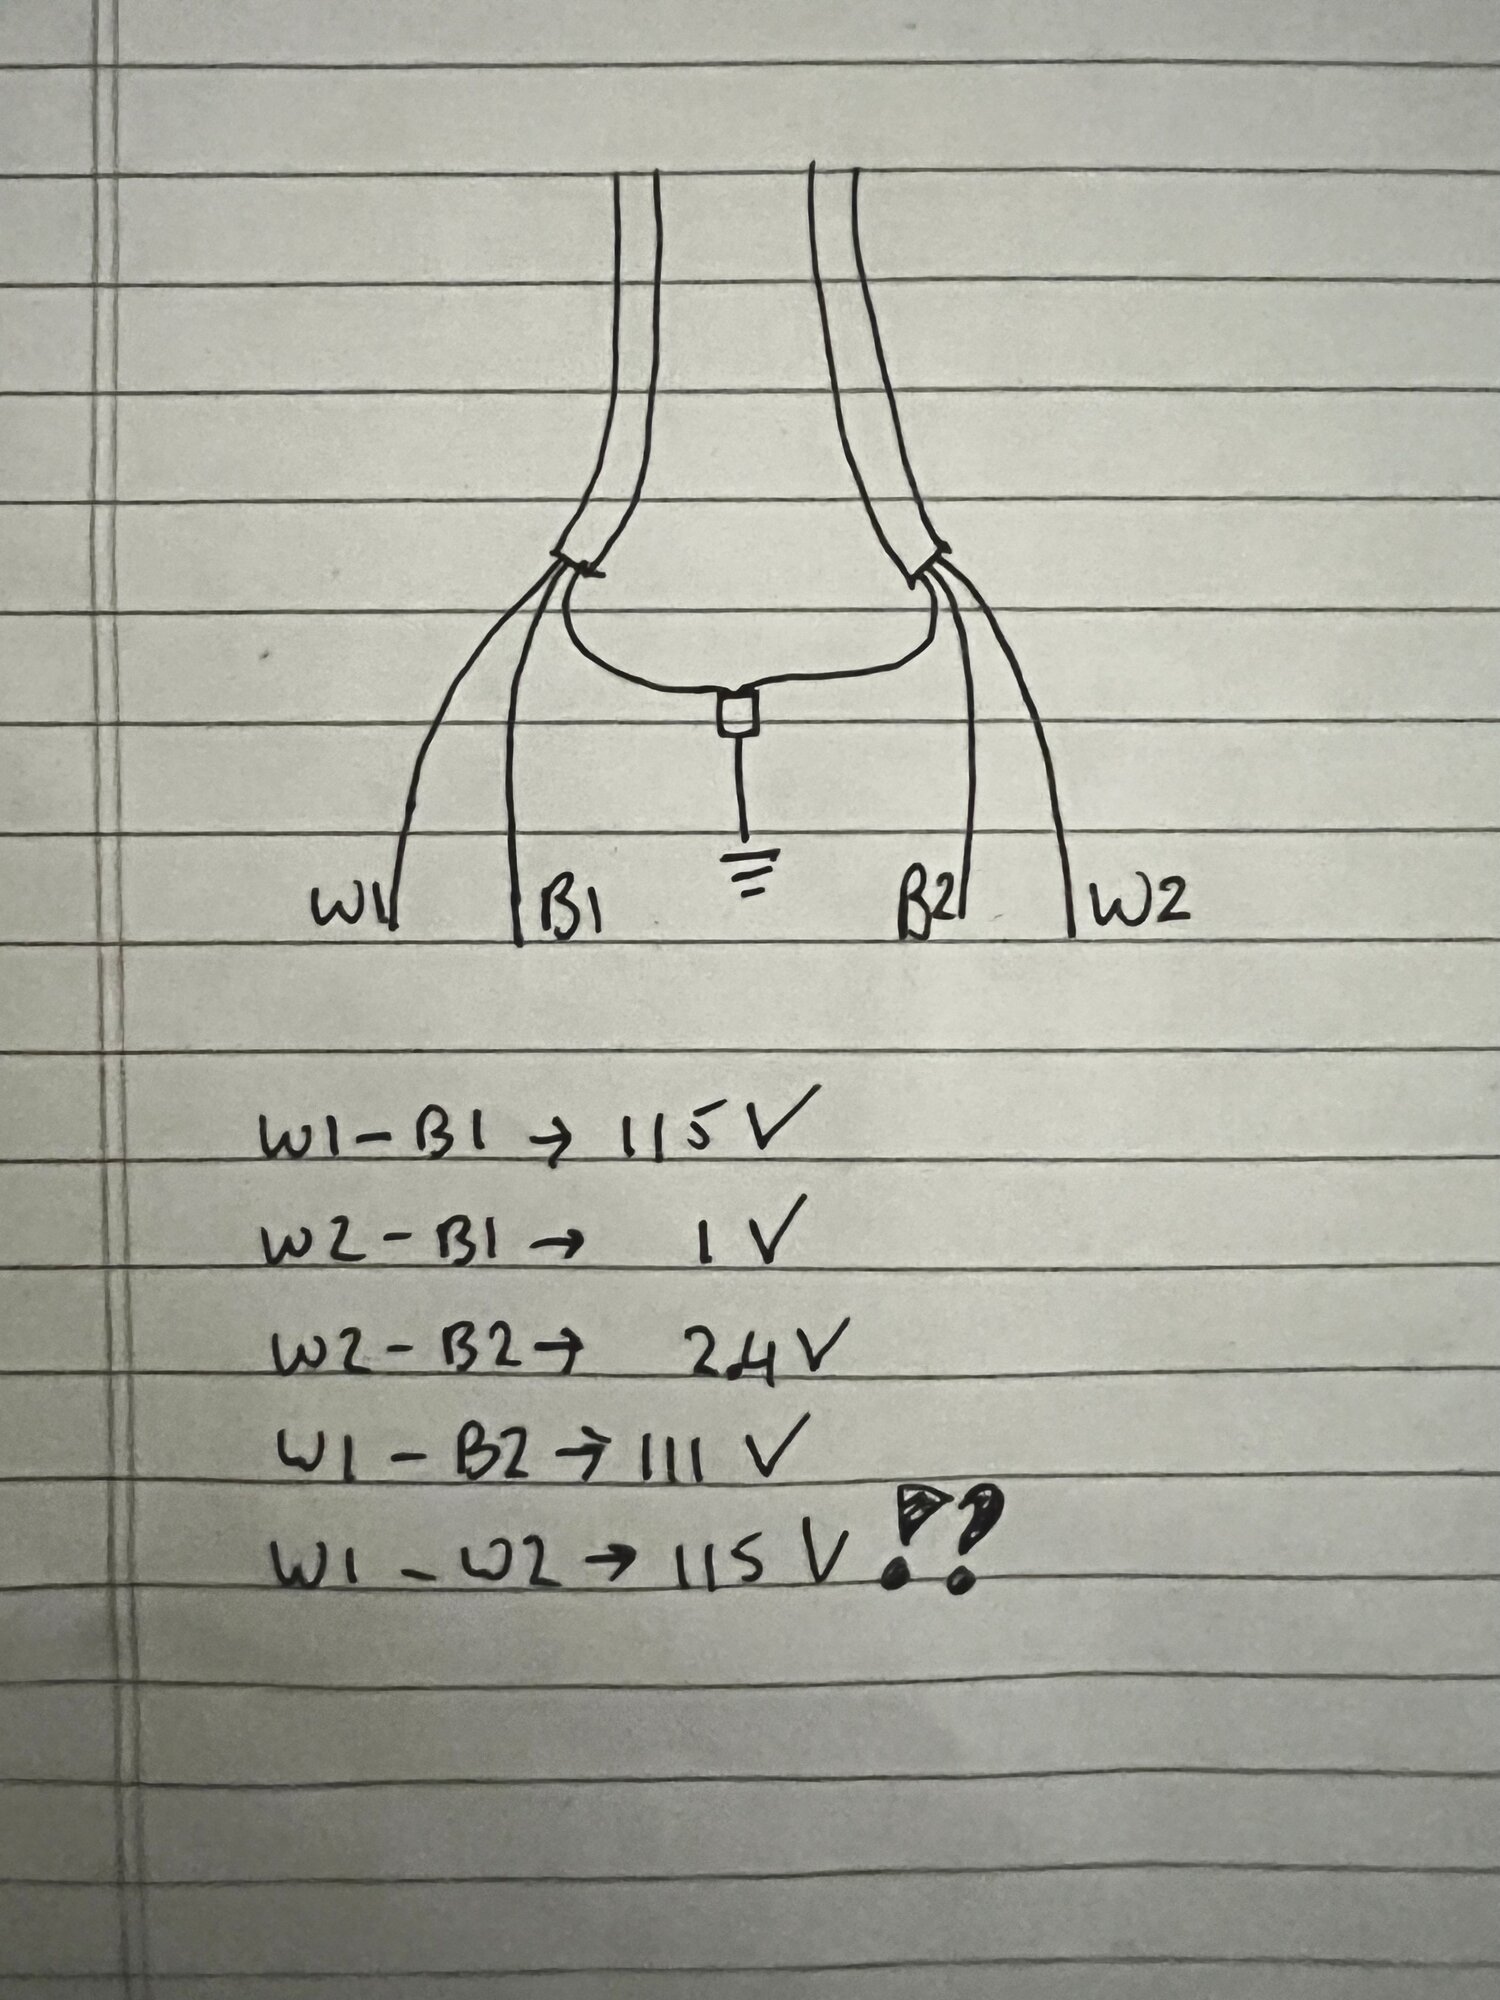 W1 B1 B2 W2
W1 - B1 → 115 V
W2 - B1 → 1 V
W2 - B2 → 2.4 V
W1 - B2 → 111 V
W1 - W2 → 115 V !?